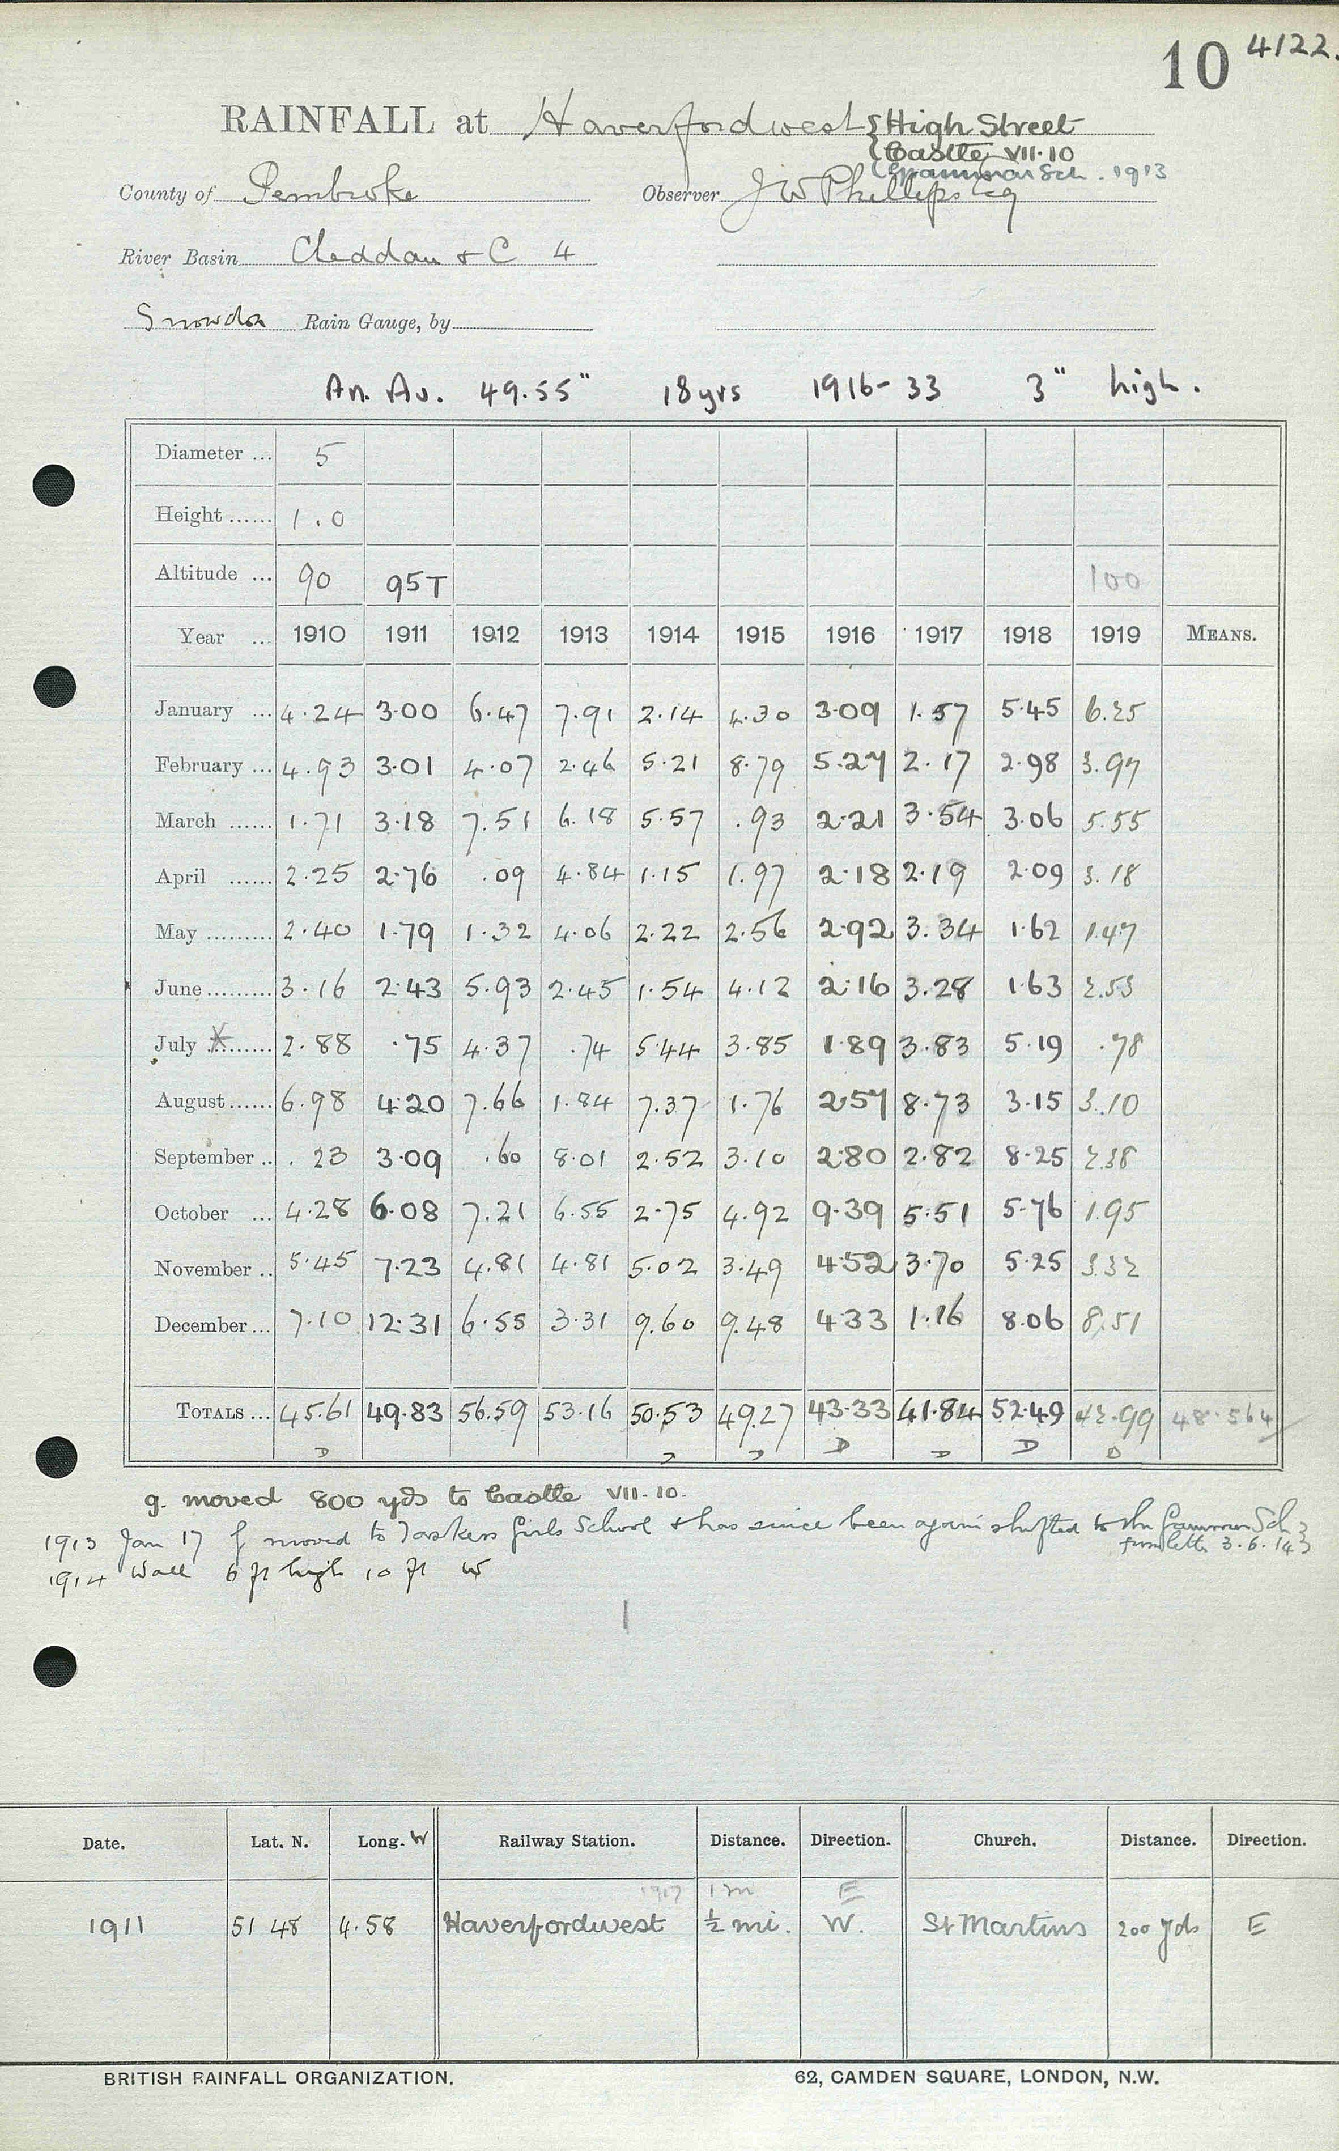 10 4122.
RAINFALL at Haverfordwest { High Street
{ Castle VII.10
( Grammar Sch. 1913
County of Pembroke Observer J W Phillips Esq
River Basin Cleddau & C 4
Snowdon Rain Gauge, by
An. Av. 49.55" 18 yrs 1916-33 3" high.
Diameter ... 5
Height ...... 1.0
Altitude ... 90 95T 100
Year ... 1910 1911 1912 1913 1914 1915 1916 1917 1918 1919 MEANS.
January ... 4.24 3.00 6.47 7.91 2.14 4.30 3.09 1.57 5.45 6.25
February ... 4.93 3.01 4.07 2.46 5.21 8.79 5.27 2.17 2.98 3.97
March ...... 1.71 3.18 7.51 6.18 5.57 .93 2.21 3.54 3.06 5.55
April ...... 2.25 2.76 .09 4.84 1.15 1.97 2.18 2.19 2.09 3.18
May ......... 2.40 1.79 1.32 4.06 2.22 2.56 2.92 3.34 1.62 1.47
June ......... 3.16 2.43 5.93 2.45 1.54 4.12 2.16 3.28 1.63 2.53
July X ......... 2.88 .75 4.37 .74 5.44 3.85 1.89 3.83 5.19 .78
August ...... 6.98 4.20 7.66 1.84 7.37 1.76 2.57 8.73 3.15 3.10
September .. .23 3.09 .60 8.01 2.52 3.10 2.80 2.82 8.25 2.38
October ... 4.28 6.08 7.21 6.55 2.75 4.92 9.39 5.51 5.76 1.95
November .. 5.45 7.23 4.81 4.81 5.02 3.49 4.52 3.70 5.25 3.32
December ... 7.10 12.31 6.55 3.31 9.60 9.48 4.33 1.16 8.06 8.51
TOTALS ... 45.61 49.83 56.59 53.16 50.53 49.27 43.33 41.84 52.49 42.99 48.564
D D D D D D D
g. moved 800 yds to Castle VII.10.
1913 Jan 17 g moved to Taskers Girls School & has since been again shifted to the Grammar Sch
from letter 3.6.14
1914 Wall 6 ft high 10 ft W
Date. Lat. N. Long. W Railway Station. Distance. Direction. Church. Distance. Direction.
1917 1 m E
1911 51 48 4.58 Haverfordwest ½ mi. W. St Martins 200 yds E
BRITISH RAINFALL ORGANIZATION. 62, CAMDEN SQUARE, LONDON, N.W.